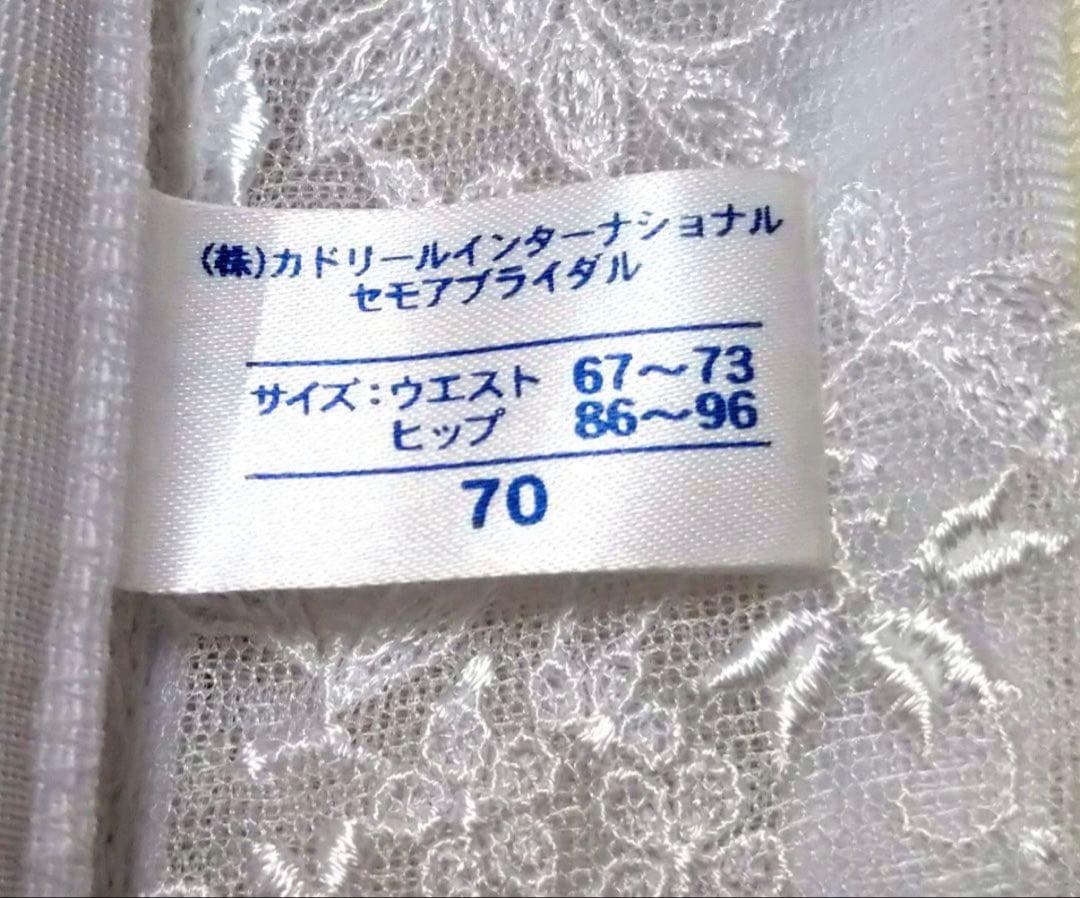 (株)カドリールインターナショナル
セモアブライダル
サイズ：ウエスト 67〜73
ヒップ 86〜96
70